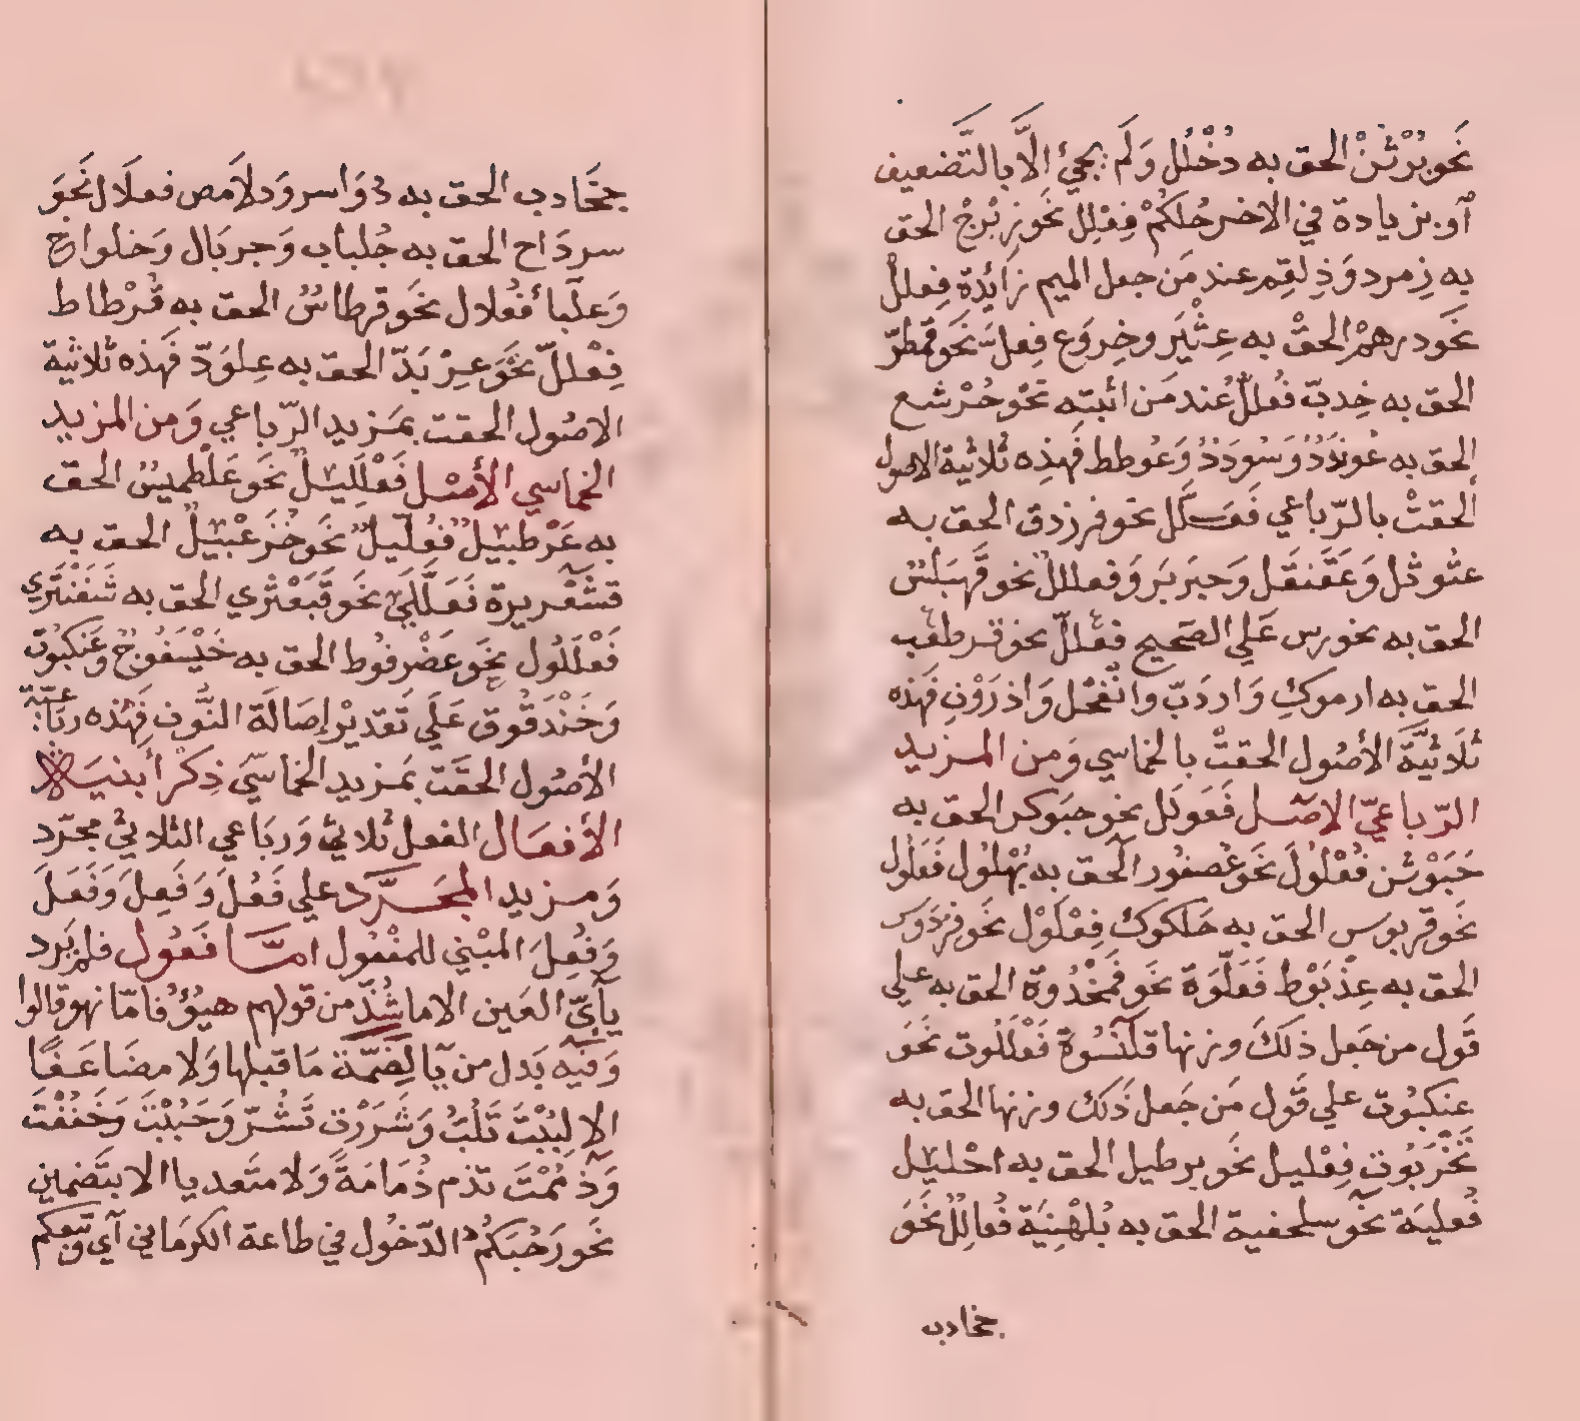 نَحو بُرْثُنْ الحق به دُخْلُل وَلَم يجئ إلَّا بالتَّضعيف
أو بزيادة في الاخر حُلكُمْ فِعْلِل نَحو زِبْرِجْ الحق
به زِمرد وَذِلقِم عند مَن جعل الميم زائدة فِعلَلْ
نَحو درهمْ الحقْ به عِثْيَر وخِروَع فِعلّ نَحو قمطرّ
الحق به خِدبّ فُعلَلٌ عُند مَن اثبته نحْو جُرْشع
الحق به عُوندَدٌ وَسُودَدٌ وَعُوطط فَهذِه ثلاثية الاصول
ألحقتْ بالرّباعي فَعَلَّل نحو فرزدق الحق به
عثوثل وَعَقَنقَل وَحبَربَر وَفعللل نحو قَهبَلس
الحق به نحورس عَلي الصَحيح فعْللّ نحو قرطعْب
الحق به ارموكِ وَاردَبّ وانْقَحْل وَاذرَوْنِ فَهَذه
ثلَاثيَّةَ الأصُول الحقتْ بالخماسي وَمن المزيد
الرّباعيّ الاصْل فَعَولَل نحو حبَوكر الحق به
حَبَوْشن فُعْلُولَ نَحو عُصفُور الحق به بُهْلُول فَعَلُول
نَحو قربوس الحق به حَلكوك فِعْلَوْل نَحو فِردَوس
الحق به عِذْبَوْط فَعَلّوَة نَحو قمَحْدُوة الحق به علي
قَول من جَعل ذلكَ وزنها قلَنْسُوة فَعْلَلُوت نَحَو
عنكبُوت علي قَول مَن جَعل ذَلك وزنها الحق به
تَخْرَبُوت فِعْليل نَحو برطيل الحق به احْليْل
فُعليَة نَحو سلحفية الحق به بُلهْنِيَة فُعالِلُ نَحَو
جخادب
جخَادب الحق به دُوَاسر وَدلَامص فعلَال نَحَو
سردَاح الحق به جُلباب وَجربَال وَخلواخ
وَعلبَاء فُعْلال نحَو قرطاسُ الحق به قُرْطاط
فِعْللّ نَحْوَ عِرْبَدّ الحق به عِلوَدّ فَهَذه ثلاثيَة
الاصُول الحقت بمَزيد الرّباعي وَمن المزيد
الخماسي الأصْل فَعْلَلِيْلُ نحَو عَلطميسُ الحق
به عَرْطبيْل فُعَلّيلٌ نَحو خُزَعْبيْلٌ الحق به
قشَعْريرة فَعَلَّلَي نحَو قَبَعْثري الحق به شَفَنْتَري
فَعْلَلُول نَحَو عَضْرفُوط الحق به خَيْسَفُوجٌ وعَنكبُوت
وَحَنْدَقُوق عَلَي تَقديْر إصَالَة النُّون فِهْذه رباعيّة
الأصُول الحقَت بمَزيد الخماسّي ذِكرُ أبنيَة
الأفعَال الفعل ثلاثي وَربَاعي الثلاثيْ مجرّد
وَمزيد المجَرَّد علي فَعُلَ وَفَعِلَ وَفَعَلَ
وَفُعِلَ المبْني للمفْعُول امَّا فَعُول فلم يَرد
يآئيّ العَين الا ما شُذّ من قولهم هيُؤُ فامّا نهو قالوا
وَفيه بَدل من يَآ لِضَمّة مَا قبلها وَلا مضَاعَفًا
الا لبُبْتَ تَلُبُّ وَشَرَرْت تَشُرّ وَحَبُبْتَ وَخَفُفْتَ
وَذمُمْتَ تذم ذُمَامَةً وَلا متَعديا الا بتَضمين
نَحو رَحُبَكُم الدّخُول في طاعة الكرمَاني أي وَسَعكم